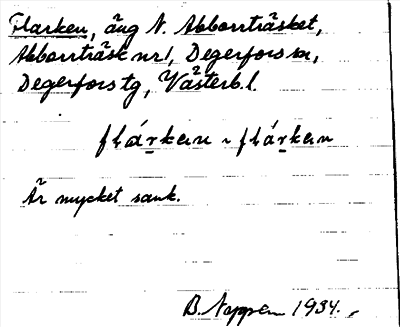 Flarken, äng N. Abborrträsket,
Abborrträsk nr 1, Degerfors sn,
Degerfors tg, Västerb. l.
flárkan ~ flárkan
Är mycket sank.
B. 1934.